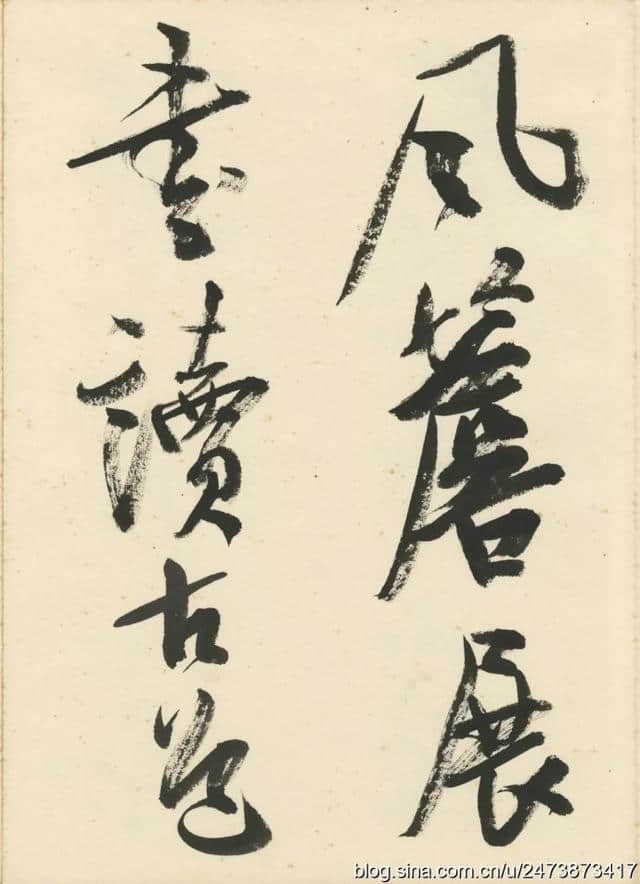 风簷展
书讀古道
blog.sina.com.cn/u/2473873417